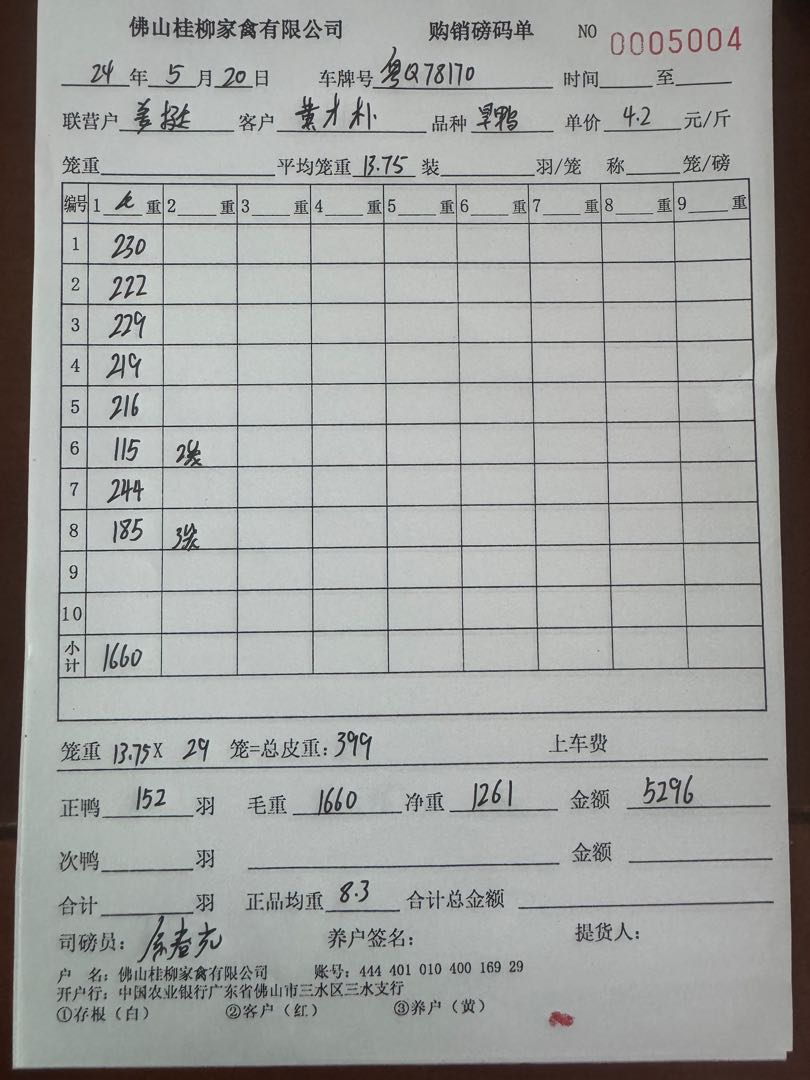 佛山桂柳家禽有限公司 购销磅码单 NO 0005004
24年5月20日 车牌号粤Q78170 时间 至
联营户姜挺 客户黄才朴 品种旱鸭 单价4.2元/斤
笼重 平均笼重13.75装 羽/笼 称 笼/磅
编号 1 重 2 重 3 重 4 重 5 重 6 重 7 重 8 重 9 重
1 230
2 222
3 229
4 219
5 216
6 115 2笼
7 244
8 185 3笼
9
10
小计 1660
笼重13.75X 29笼=总皮重:399 上车费
正鸭152羽 毛重1660净重1261 金额5296
次鸭 羽 金额
合计 羽 正品均重8.3 合计总金额
司磅员: 养户签名: 提货人:
户 名:佛山桂柳家禽有限公司 账号:444 401 010 400 169 29
开户行:中国农业银行广东省佛山市三水区三水支行
①存根(白) ②客户(红) ③养户(黄)